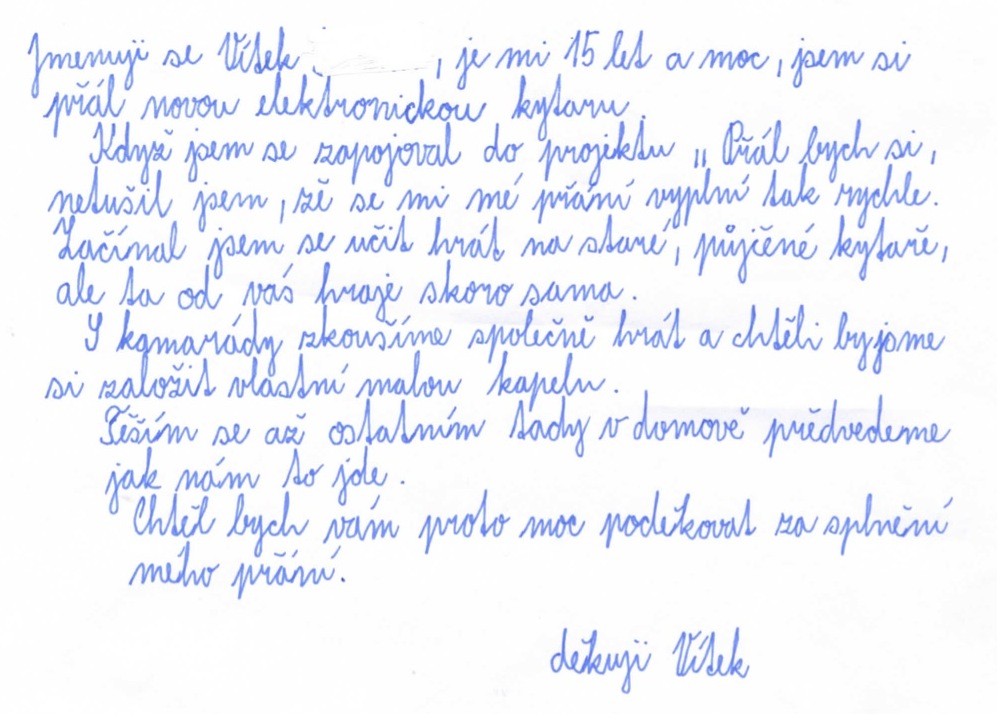 Jmenuji se Vítek , je mi 15 let a moc, jsem si
přál novou elektronickou kytaru.
Když jsem se zapojoval do projektu „ Přál bych si,
netušil jsem, žě se mi mé přání vyplní tak rychle.
Začínal jsem se učit hrát na staré, půjčéné kytaře,
ale ta od vás hraje skoro sama.
S kamarády zkoušíme společně hrát a chtěli byjsme
si založit vlastní malou kapelu.
Těším se až ostatním tady v domově předvedeme
jak nám to jde.
Chtěl bych vám proto moc poděkovat za splnění
mého přání.
děkuji Vítek